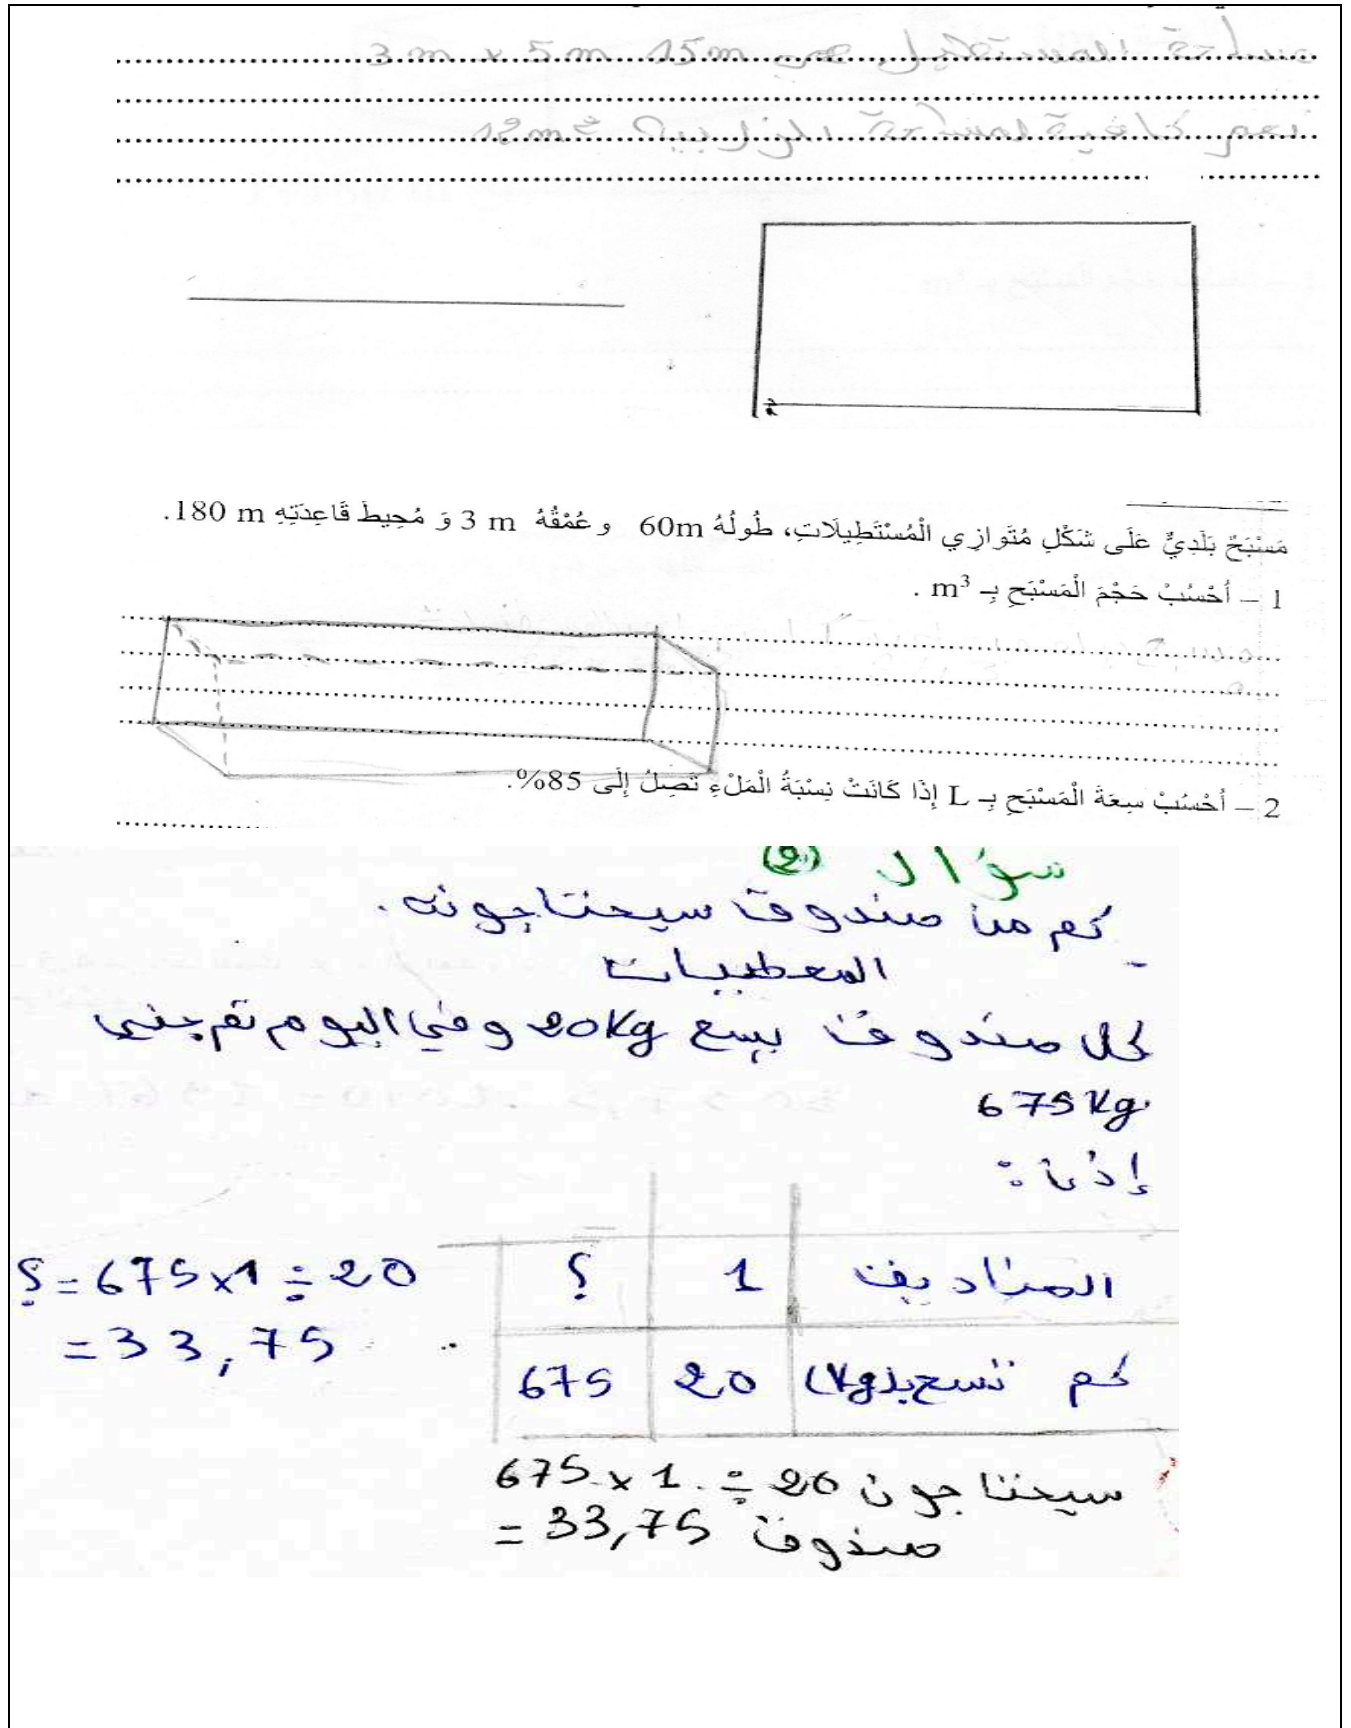 مساحة المستطيل هي 15m 3m x 5m
نعم كافية لمساحة الزرابي 12m²
مَسْبَحٌ بَلَدِيٌّ عَلَى شَكْلِ مُتَوازِي الْمُسْتَطِيلَاتِ، طُولُهُ 60m و عُمْقُهُ 3 m وَ مُحِيطُ قَاعِدَتِهِ 180 m.
1 – أَحْسُبْ حَجْمَ الْمَسْبَحِ بِـ m³ .
2 – أَحْسُبْ سِعَةَ الْمَسْبَحِ بِـ L إِذَا كَانَتْ نِسْبَةُ الْمَلْءِ تَصِلُ إِلَى 85%.
سؤال (2)
- كم من صندوق سيحتاجونه.
المعطيات
كل صندوق يسع 20Kg وفي اليوم تم جني
675Kg
إذن :
الصناديق 1 ؟
؟ = 675 x 1 ÷ 20
= 33,75
كم تسع بـ (Kg) 20 675
سيحتاجون 675 x 1 ÷ 20
= 33,75 صندوق